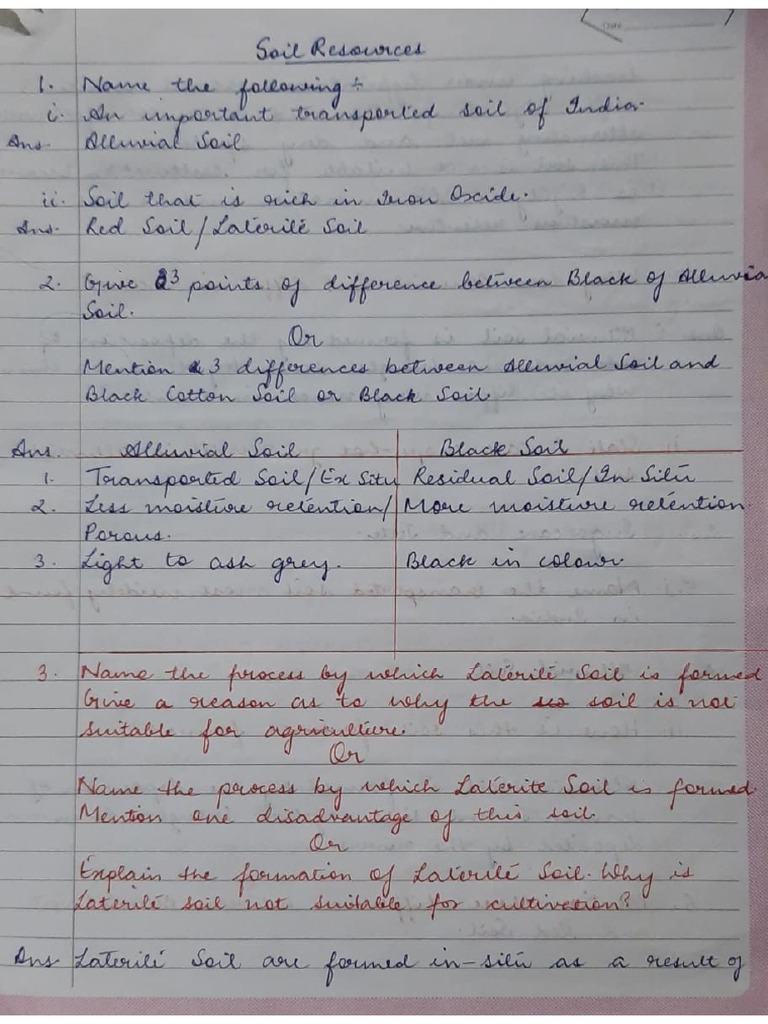 Soil Resources
1. Name the following :-
i. An important transported soil of India.
Ans. Alluvial Soil
ii. Soil that is rich in Iron Oxide.
Ans. Red Soil/Laterite Soil
2. Give 3 points of difference between Black of Alluvia
Soil.
Or
Mention 3 differences between Alluvial Soil and
Black Cotton Soil or Black Soil.
Ans. Alluvial Soil Black Soil
1. Transported Soil/Ex Situ Residual Soil/In Situ
2. Less moisture retention/ More moisture retention
Porous.
3. Light to ash grey. Black in colour.
3. Name the process by which Laterite Soil is formed
Give a reason as to why the soil is not
suitable for agriculture.
Or
Name the process by which Laterite Soil is formed
Mention one disadvantage of this soil.
Or
Explain the formation of Laterite Soil. Why is
Laterite soil not suitable for cultivation?
Ans Laterite Soil are formed in-situ as a result of